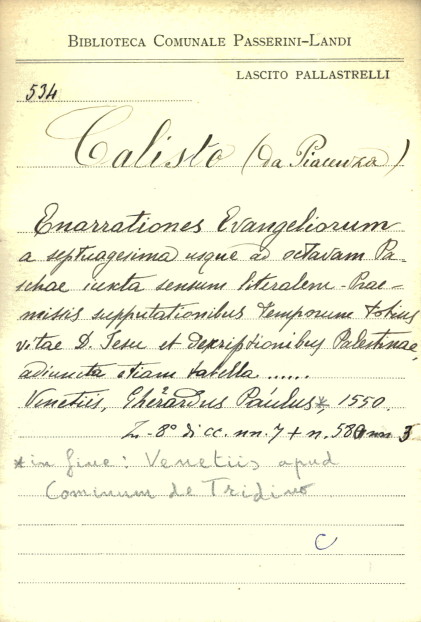 BIBLIOTECA COMUNALE PASSERINI-LANDI
LASCITO PALLASTRELLI
534
Calisto (da Piacenza)
Enarrationes Evangeliorum
a septuagesima usque ad octavam Pa-
schae iuxta sensum literalem - Prae-
missis supputationibus temporum totius
vitae D. Iesu et descriptionibus Palestinae,
adiuncta etiam tabella ......
Venetiis, Gherardus Paulus*, 1550.
In-8° di cc. nn. 7 + n. 580 nn 3
*in fine: Venetiis apud
Cominum de Tridino
C